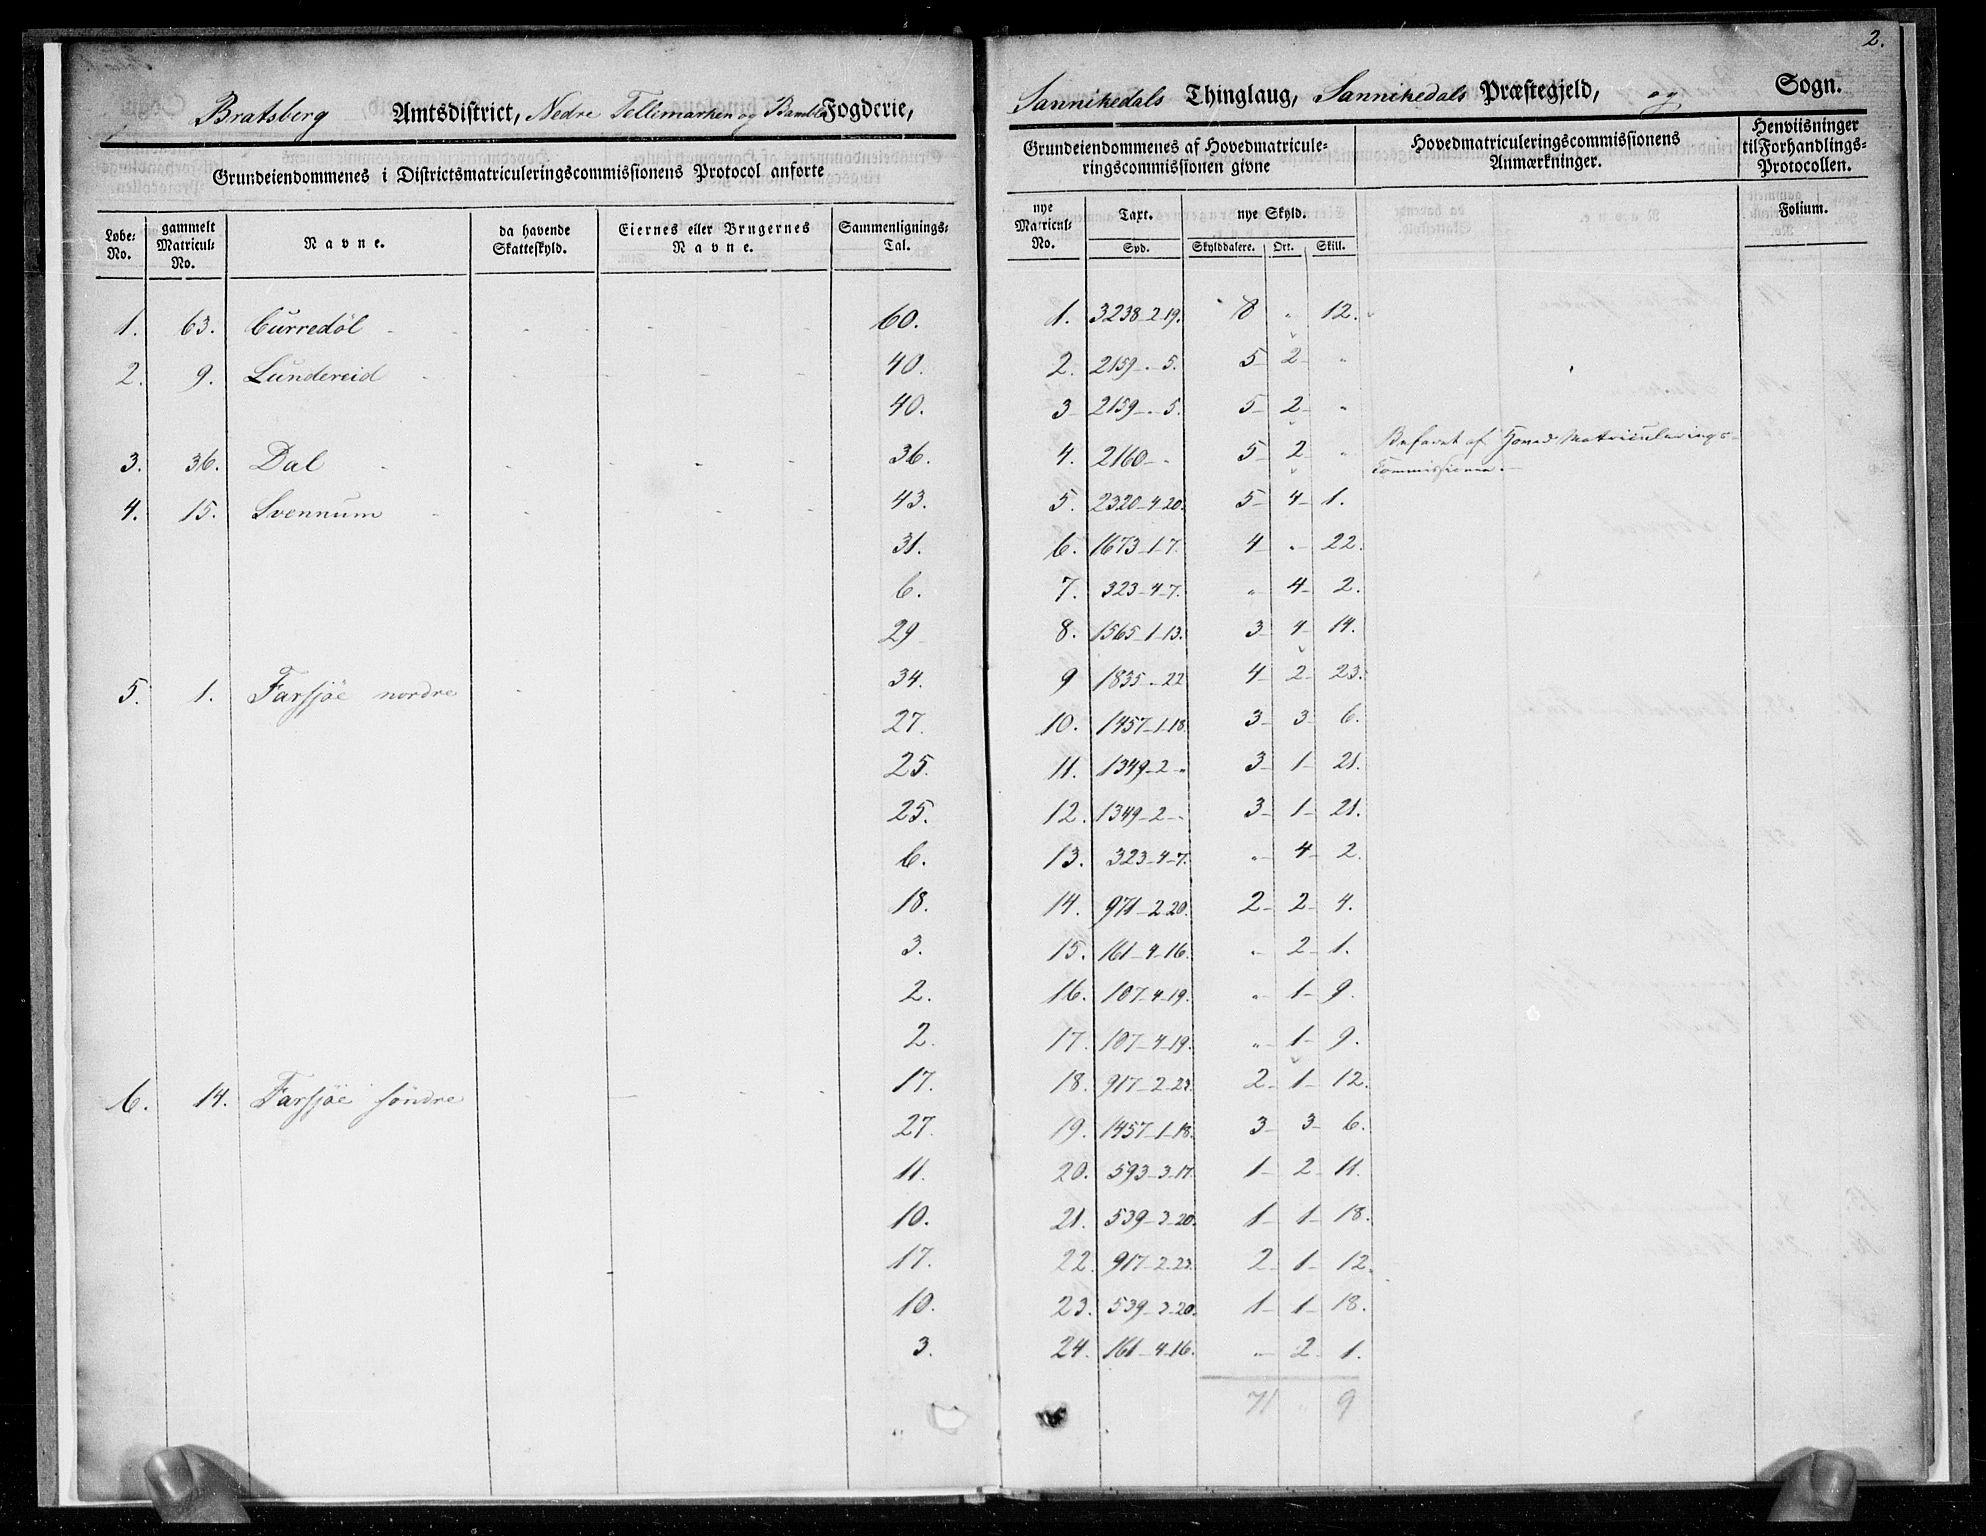 2.
Bratsberg Amtsdistrict, Nedre Tellemarken og Bamble Fogderie,
Grundeiendommenes i Districtsmatriculeringscommissionens Protocol anførte
Løbe-No. gammelt Matricul-No. Navne. da havende Skatteskyld. Eiernes eller Brugernes Navne. Sammenlignings-Tal.
Sannikedals Thinglaug, Sannikedals Præstegjeld, og Sogn.
Grundeiendommenes af Hovedmatriculeringscommissionen givne Hovedmatriculeringscommissionens Anmærkninger. Henviisninger til Forhandlings-Protocollen.
nye Matricul-No. Taxt. Spd. nye Skyld. Skylddalere. Ort. Skill. Folium.
1. 63. Curredøl - - - - - 60. 1. 3238-2-19. 8 " 12.
2. 9. Lundereid - - - - - 40. 2. 2159-.-5. 5- 2- "
40. 3 2159-.-5. 5- 2- "
3. 36. Dal - - - - - 36. 4. 2160-" 5 2- " Befaret af Hoved Matriculerings-
Commissionen.-
4. 15. Svennum - - - - - 43. 5. 2320-4-20. 5- 4- 1.
31. 6. 1673-1-7. 4- "- 22.
6. 7. 323-4-7. " 4- 2.
29 8. 1565-1-13. 3- 4- 14.
5. 1. Farsjøe nordre - - - - 34. 9 1835-.-22 4- 2- 23.
27. 10. 1457-1-18. 3- 3- 6.
25. 11. 1349-2-" 3- 1- 21.
25. 12. 1349-2-" 3- 1- 21.
6. 13. 323-4-7. "- 4- 2.
18. 14. 971-2-20. 2- 2- 4.
3. 15. 161-4-16. "- 2- 1.
2. 16. 107-4-19. "- 1- 9.
2. 17. 107-4-19. "- 1- 9.
6. 14. Farsjøe søndre - - - - 17. 18. 917-2-23. 2- 1- 12.
27. 19. 1457-1-18. 3- 3- 6.
11. 20. 593-3-17. 1- 2- 11.
10. 21. 539-3-20. 1- 1- 18.
17. 22. 917-2-23. 2- 1- 12.
10. 23. 539-3-20. 1- 1- 18.
3. 24. 161-4-16. "- 2- 1.
71 " 9